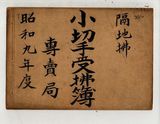 隔地拂
小切手受拂簿
專賣局
昭和九年度